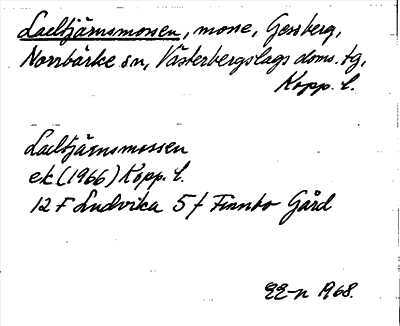 Lacktjärnsmossen, mosse, Gessberg,
Norrbärke sn, Västerbergslags doms. tg,
Kopp. l.
Lacktjärnsmossen
ek. (1966) Kopp. l.
12 F Ludvika 5 f Finnbo Gård
1968.